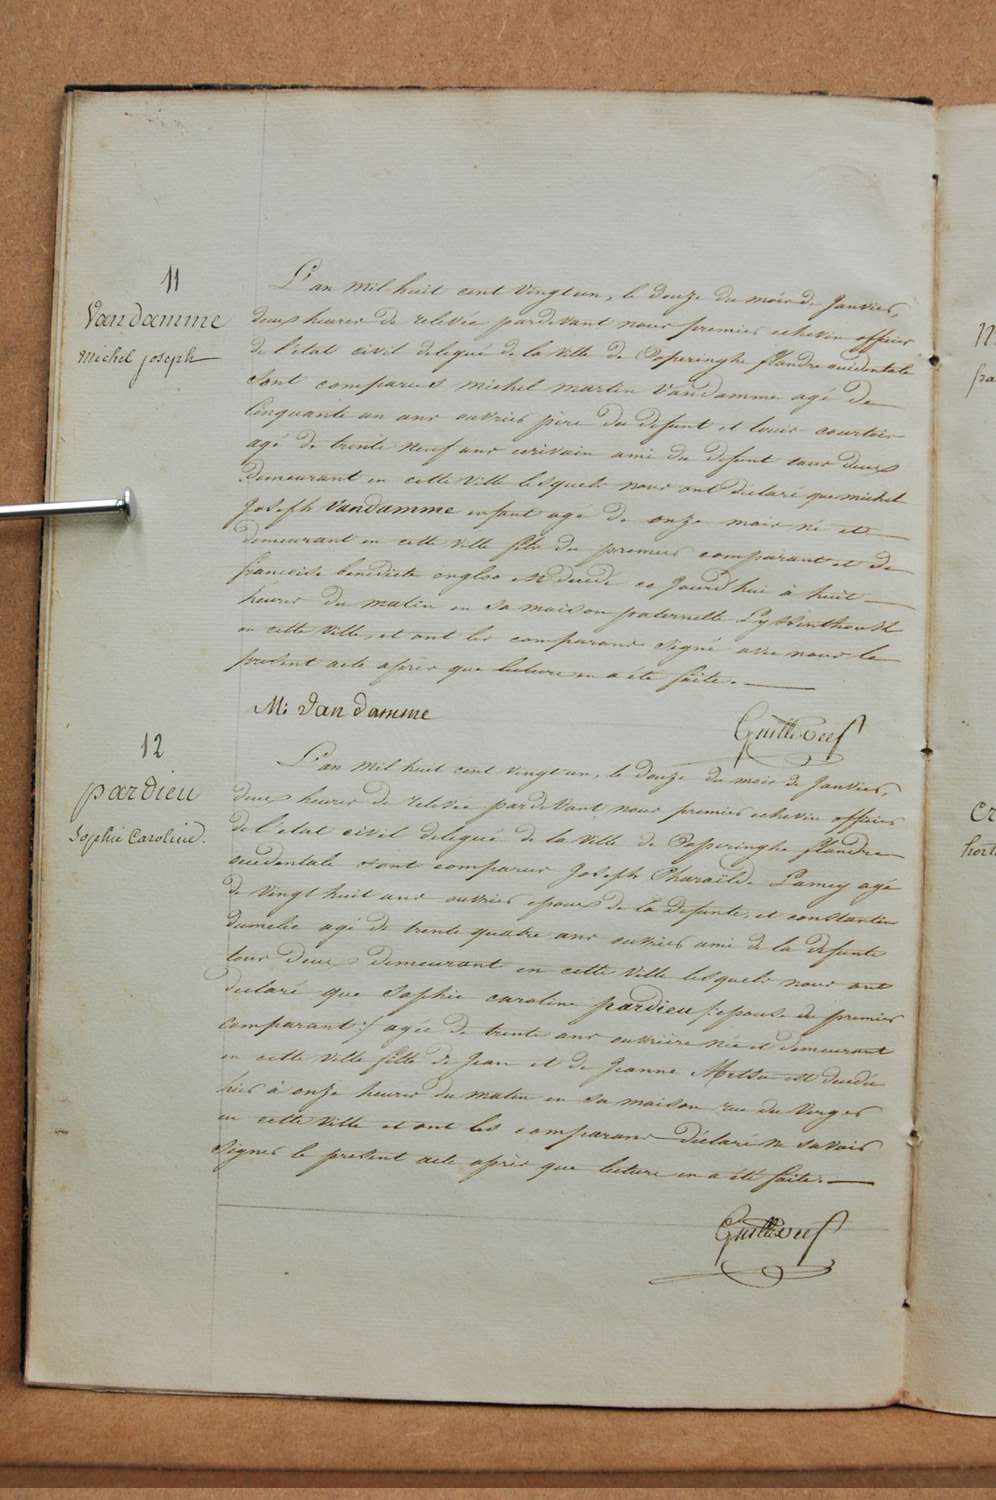 11
Vandamme
michel joseph
L'an mil huit cent vingt un, le douze du mois de Janvier,
deux heures de relevée pardevant nous premier echevin officier
de l'etat civil delegué de la ville de Poperinghe flandre occidentale
sont comparus michel martin Vandamme agé de
cinquante un ans ouvrier père du defunt et louis courtois
agé de trente neuf ans ecrivain ami du defunt tous deux
demeurant en cette ville lesquels nous ont déclaré que michel
Joseph Vandamme enfant agé de onze mois né et
demeurant en cette ville fils du premier comparant et de
francoise benedicte est decedé ce jourd'hui à huit
heures du matin en sa maison paternelle
en cette ville, et ont les comparans signé avec nous le
présent acte après que lecture en a été faite.
M: Van damme
12
pardieu
Sophie Caroline.
L'an mil huit cent vingt un, le douze du mois de Janvier,
deux heures de relevée pardevant nous premier echevin officier
de l'etat civil delegué de la ville de Poperinghe flandre
occidentale sont comparus Joseph Pharaïlde Lamey agé
de vingt huit ans ouvrier epoux de la defunte, et constantin
agé de trente quatre ans ouvrier ami de la defunte
tous deux demeurant en cette ville lesquels nous ont
declaré que Sophie caroline pardieu /: epouse du premier
comparant :/ agée de trente ans ouvrière née et demeurant
en cette ville fille de Jean et de Jeanne est decedée
hier à onze heures du matin en sa maison rue du Verger
en cette ville et ont les comparans déclaré ne savoir
signer le présent acte après que lecture en a été faite.